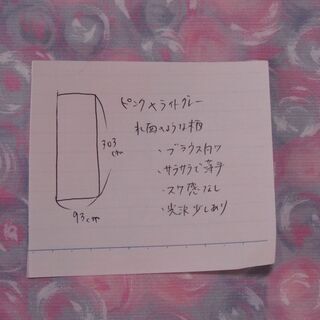 ピンク×ライトグレー
水面のような柄
・ブラウスタツ
・サラサラで薄手
・スケ感なし
・光沢少しあり
303cm
93cm